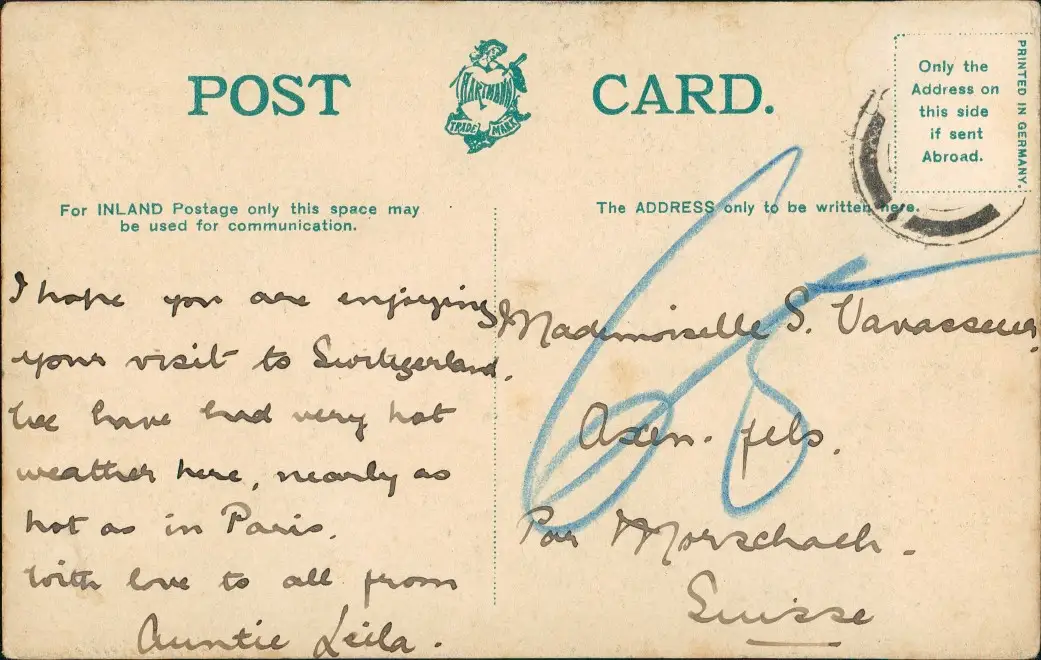 POST CARD.
HARTMANN
TRADE MARK
Only the
Address on
this side
if sent
Abroad.
PRINTED IN GERMANY.
For INLAND Postage only this space may
be used for communication.
The ADDRESS only to be written here.
I hope you are enjoying
your visit to Switzerland.
We have had very hot
weather here, nearly as
hot as in Paris.
With love to all from
Auntie Leila.
Mademoiselle S. Vavasseur,
Axen-fels.
Par Morschach-
Suisse
65